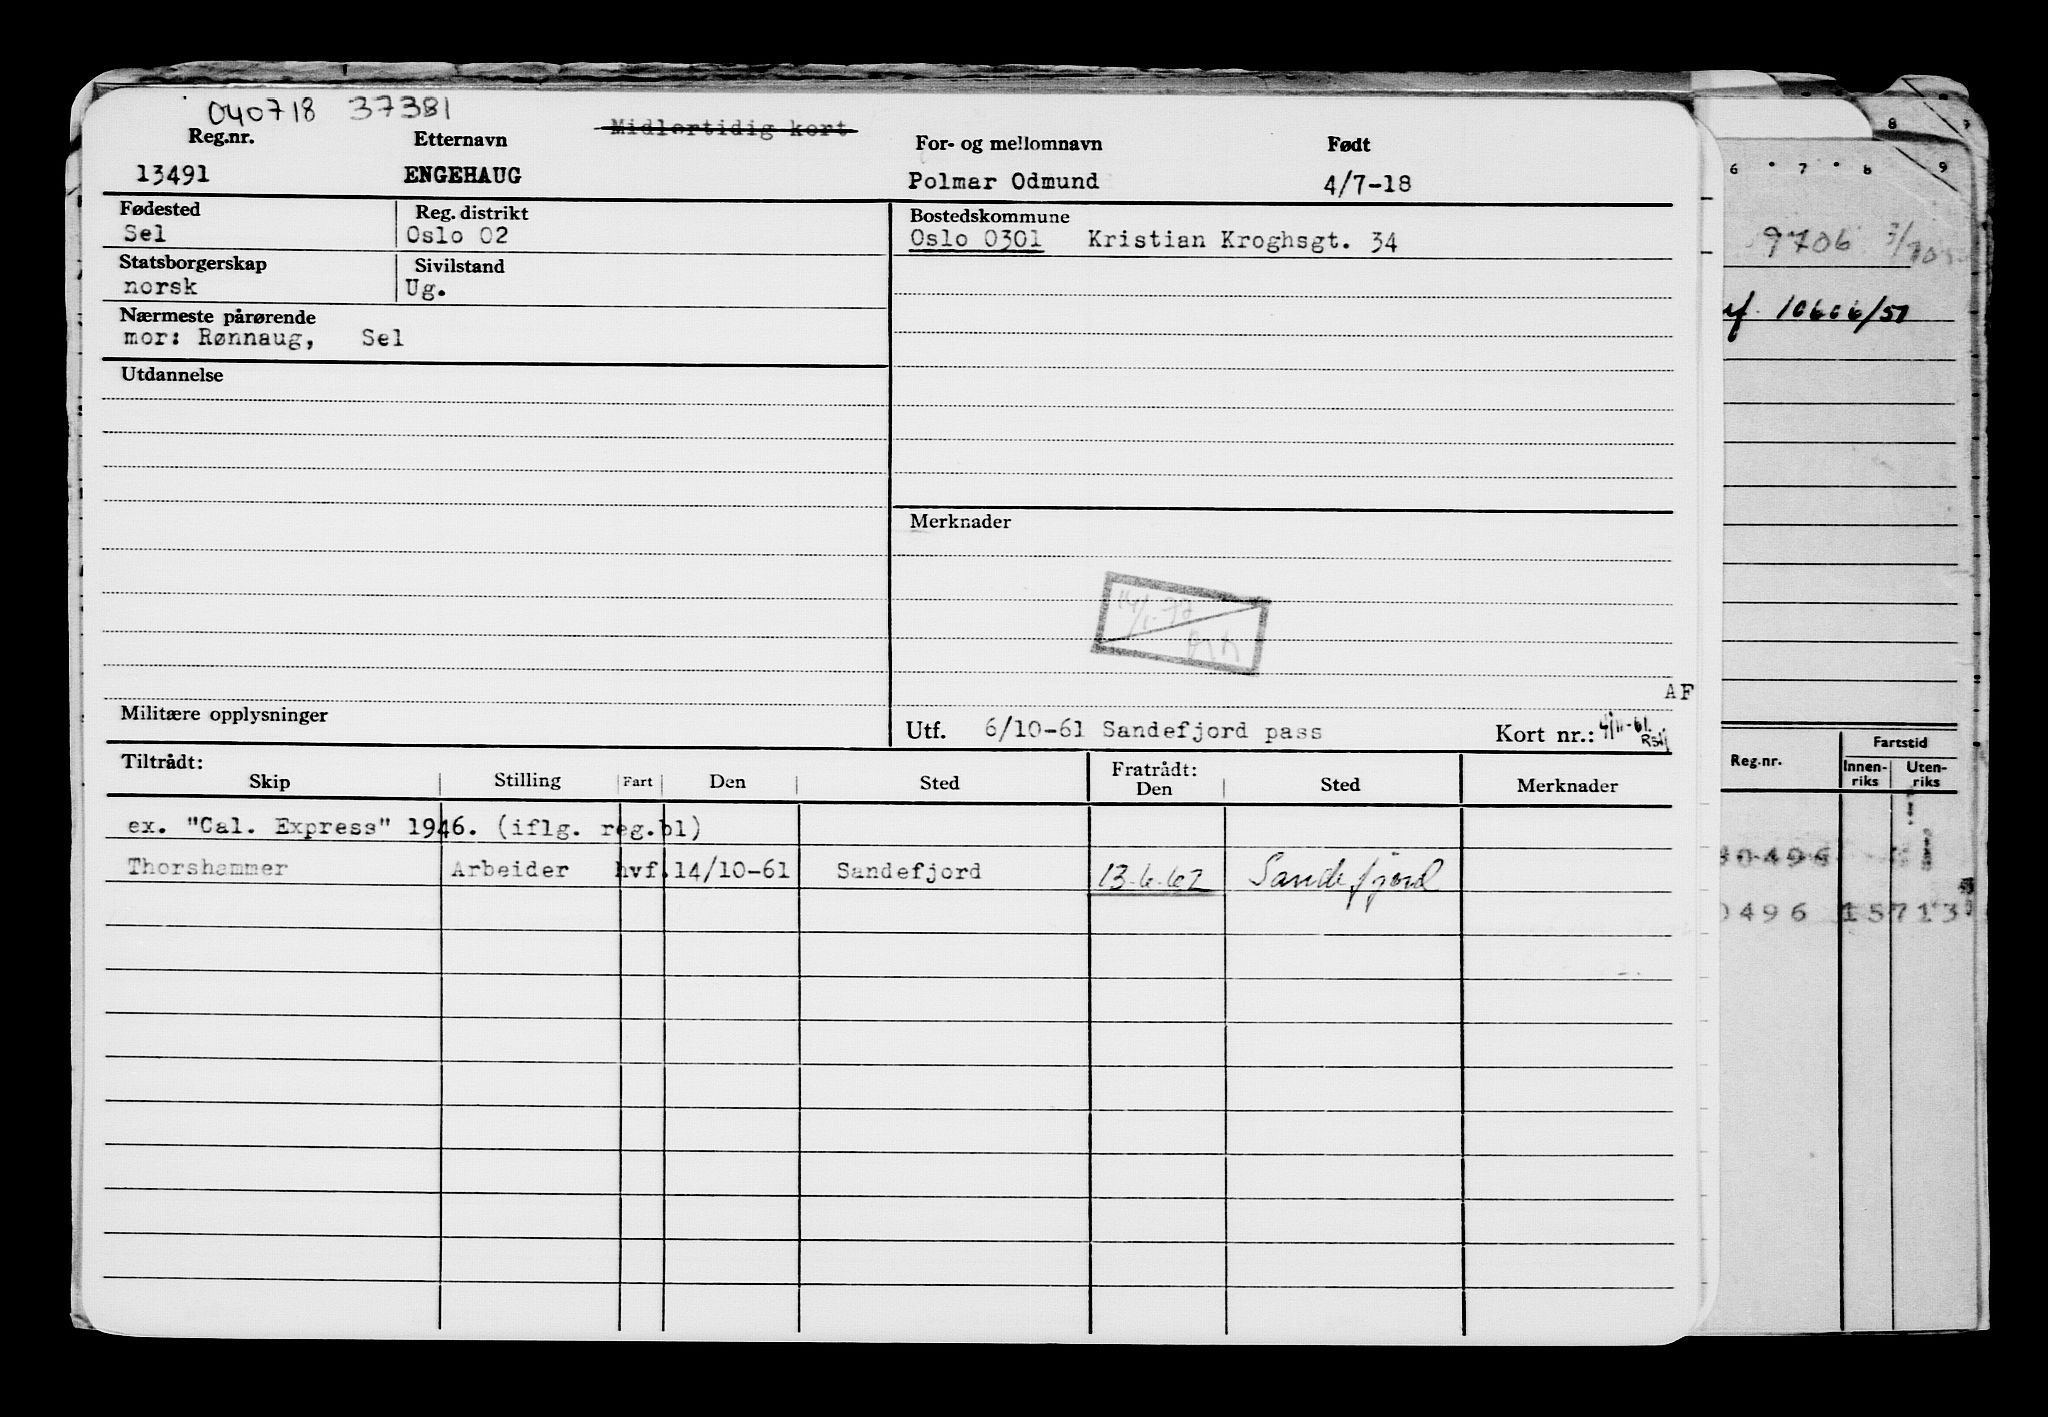 040718 37381
Reg.nr. Etternavn Midlertidig kort For- og mellomnavn Født
13491 ENGEHAUG Polmar Odmund 4/7-18
Fødested Reg. distrikt Bostedskommune
Sel Oslo 02 Oslo 0301 Kristian Kroghsgt. 34
Statsborgerskap Sivilstand
norsk Ug.
Nærmeste pårørende
mor: Rønnaug, Sel
Utdannelse
Merknader
AF
Militære opplysninger Utf. 6/10-61 Sandefjord pass Kort nr.: 4/11-61.
Tiltrådt: Fratrådt:
Skip Stilling Fart Den Sted Den Sted Merknader
ex. "Cal. Express" 1946. (iflg. reg.bl)
Thorshammer Arbeider hvf. 14/10-61 Sandefjord 13-6-62 Sandefjord
8 9
6 7 8 9
9706
10606/51
Reg.nr. Fartstid
Innen-riks Uten-riks
30496
0496 15713